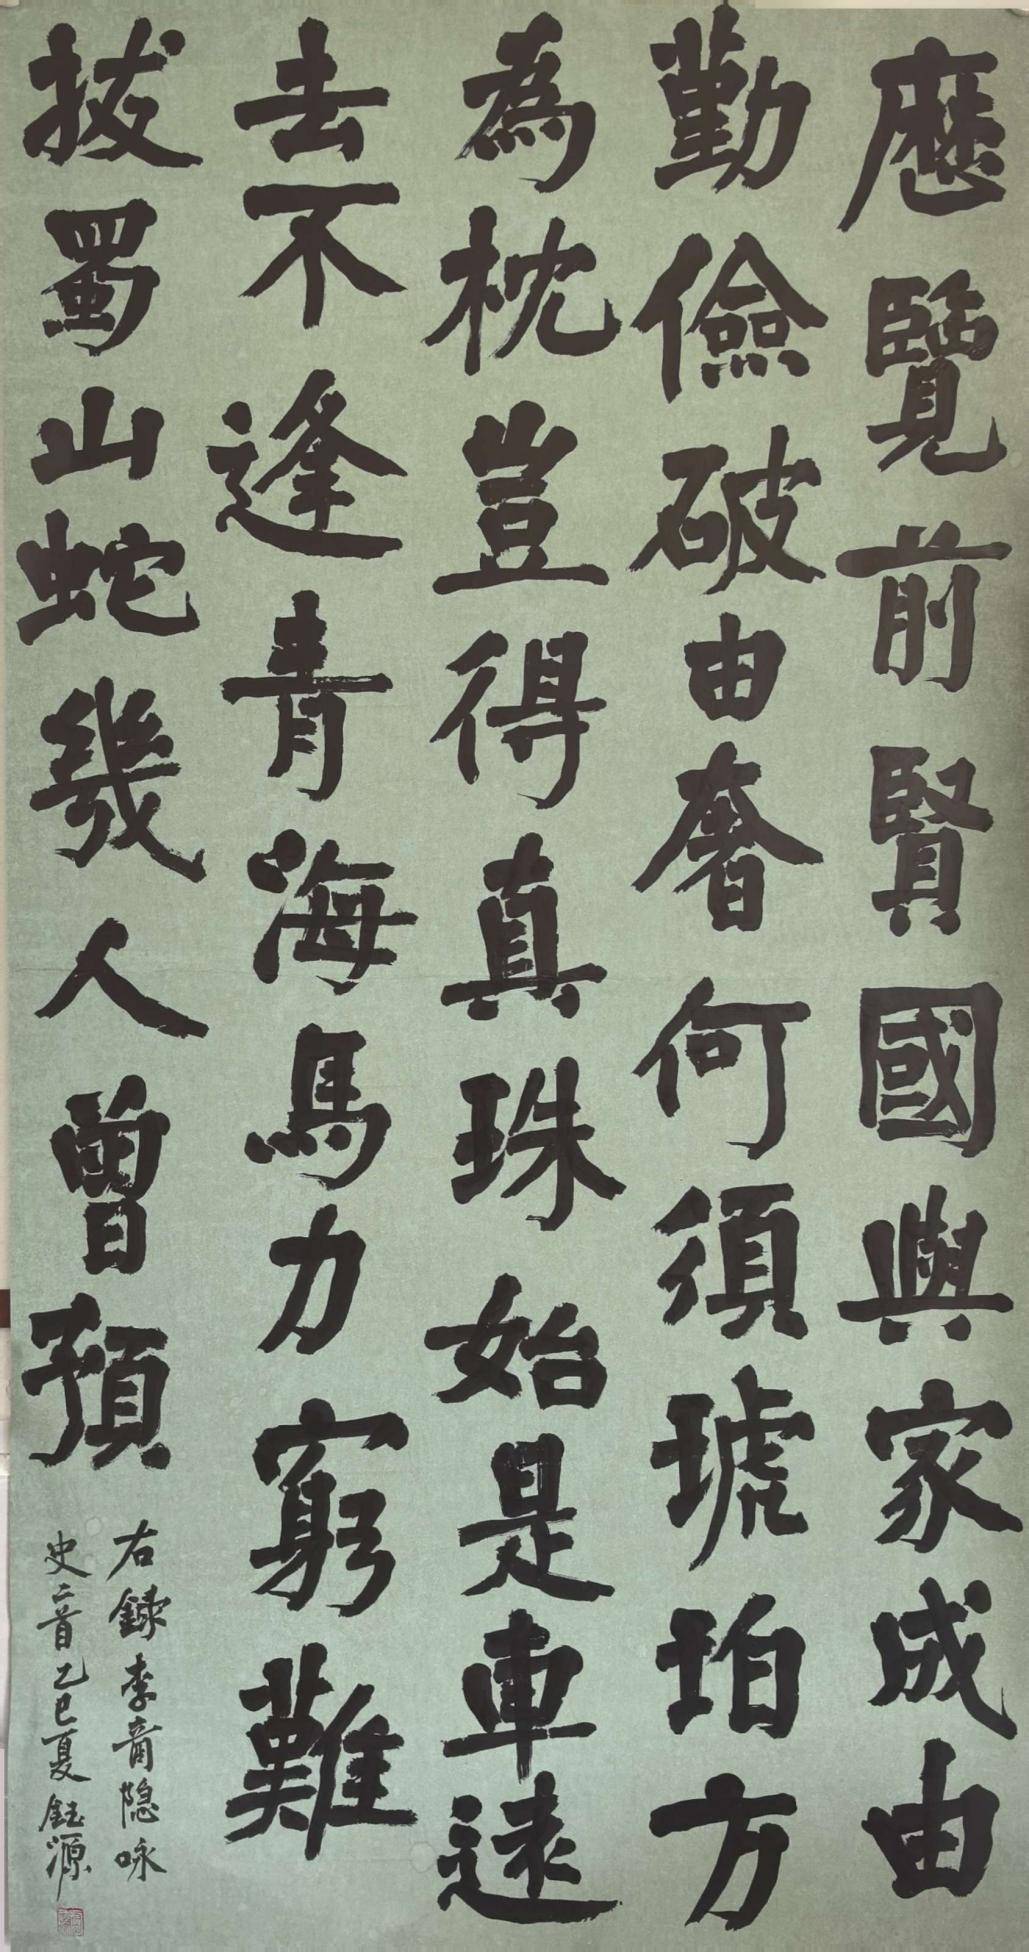 歷覽前賢國與家成由
勤儉破由奢何須琥珀方
為枕豈得真珠始是車遠
去不逢青海馬力窮難
拔蜀山蛇幾人曾預
右錄李商隐咏
史二首乙巳夏鈺源